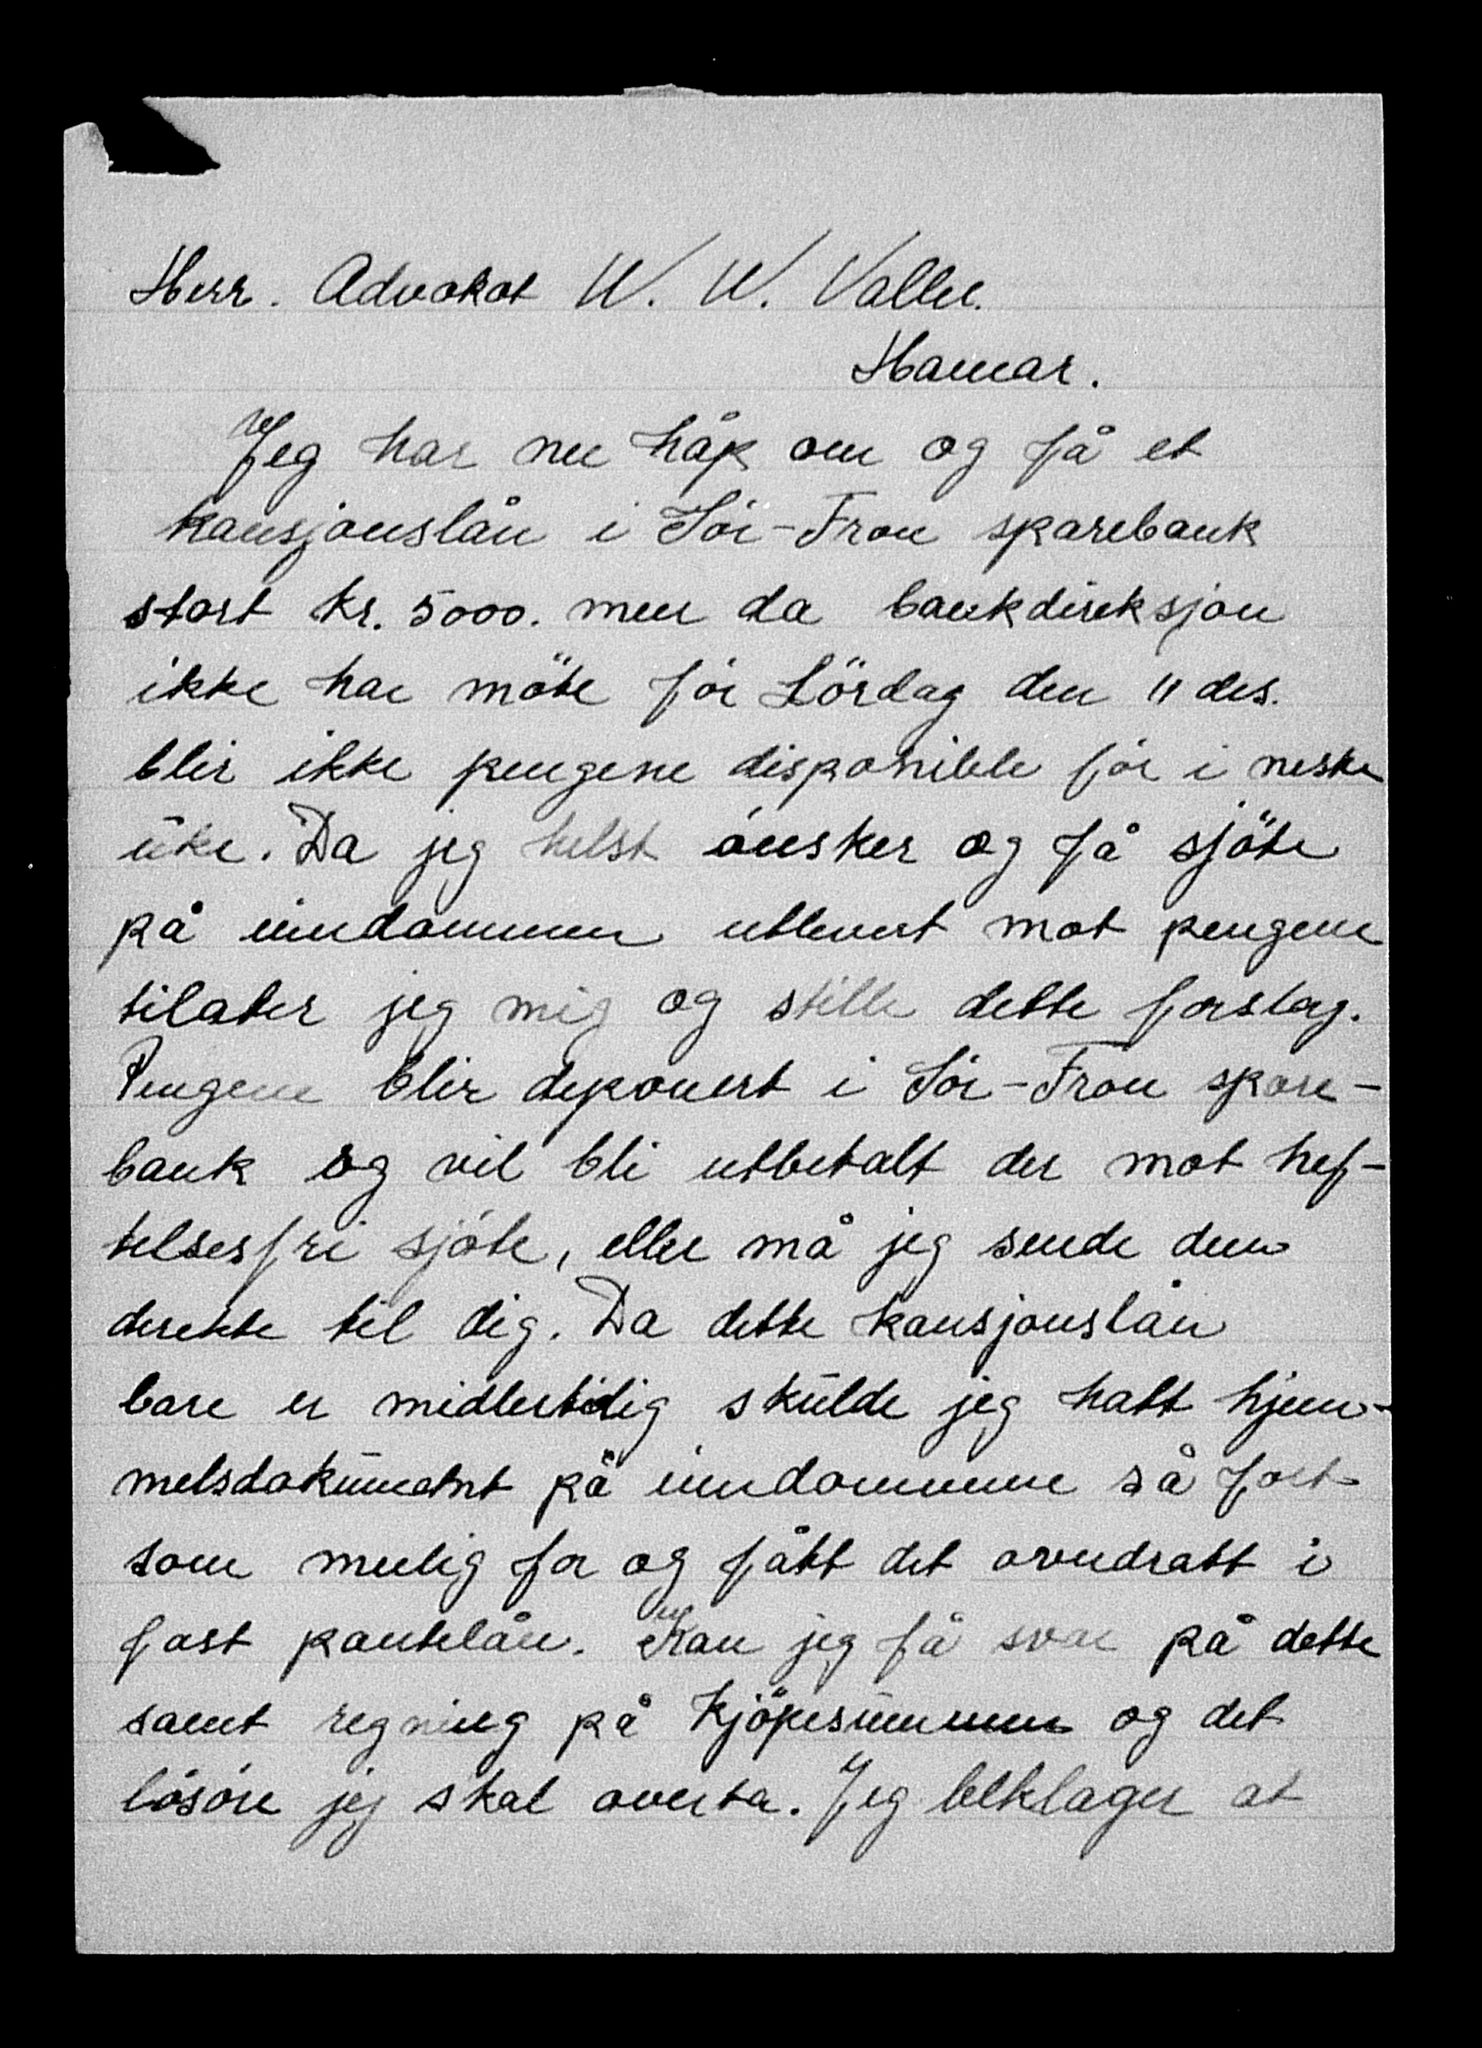 Herr. Advokat W. W. Valle.
Hamar.
Jeg har nu håp om og få et
kausjonslån i Sór-Fron sparebank
stort kr. 5000. men da bankdireksjon
ikke har möte fór Lördag den 11 des.
blir ikke pengene disponible fór i neste
uke. Da jeg helst ónsker og få sjöte
på eiendommen utlevert mot pengene
tilater jeg mig og stille dette forslag.
Pengene blir deponert i Sór-Fron spare-
bank og vil bli utbetalt der mot hef-
telsesfri sjóte, eller må jeg sende dem
derekte til dig. Da dette kausjonslån
bare er midlertidig skulde jeg hatt hjem-
melsdokument på eiendommene så fort
som mulig for og fått det orndratt i
fast pantelån. Kan jeg få svar på dette
samt regning på kjöpesummen og det
lósóre jej skal overta. Jeg beklager at